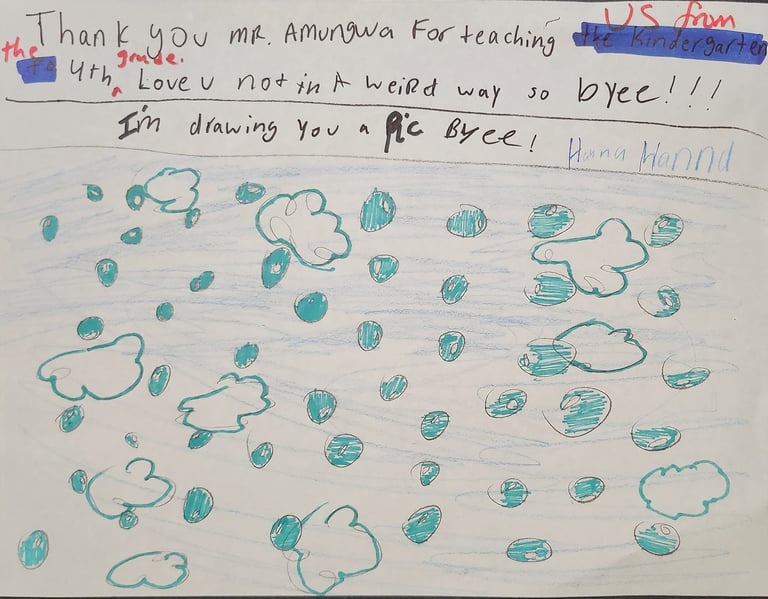 Thank you MR. Amungwa For teaching US from
the Kindergarten
the to 4th grade. Love u not in A weird way so byee!!!
I'm drawing you a Pic Byee! Hanna Hannd